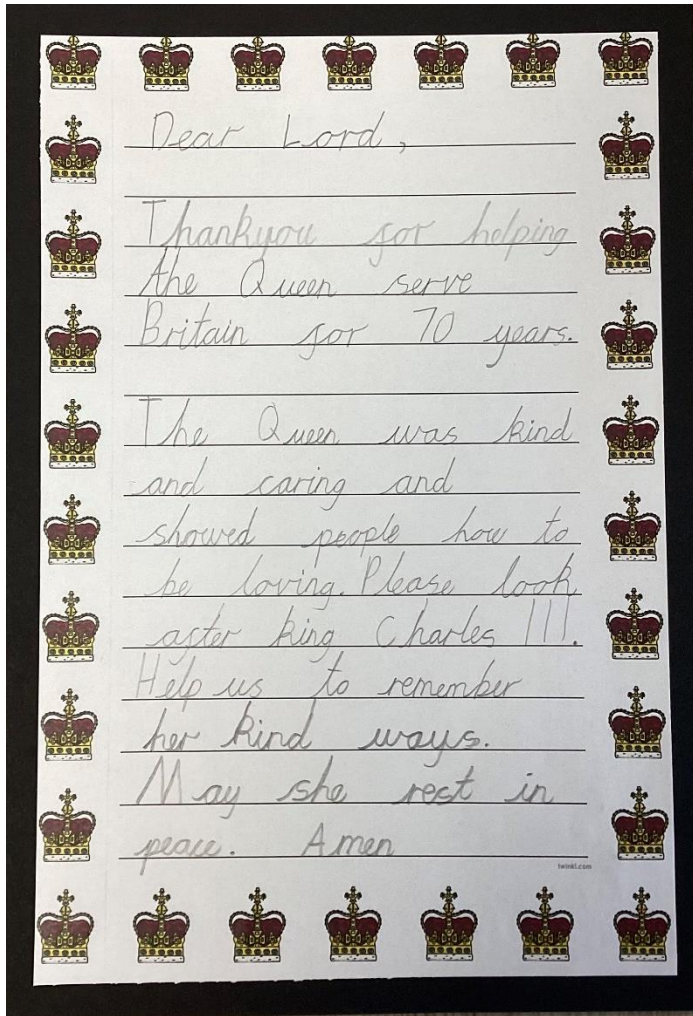 Dear Lord,
Thankyou for helping
the Queen serve
Britain for 70 years.
The Queen was kind
and caring and
showed people how to
be loving. Please look
after king Charles III.
Help us to remember
her kind ways.
May she rest in
peace. Amen
twinkl.com